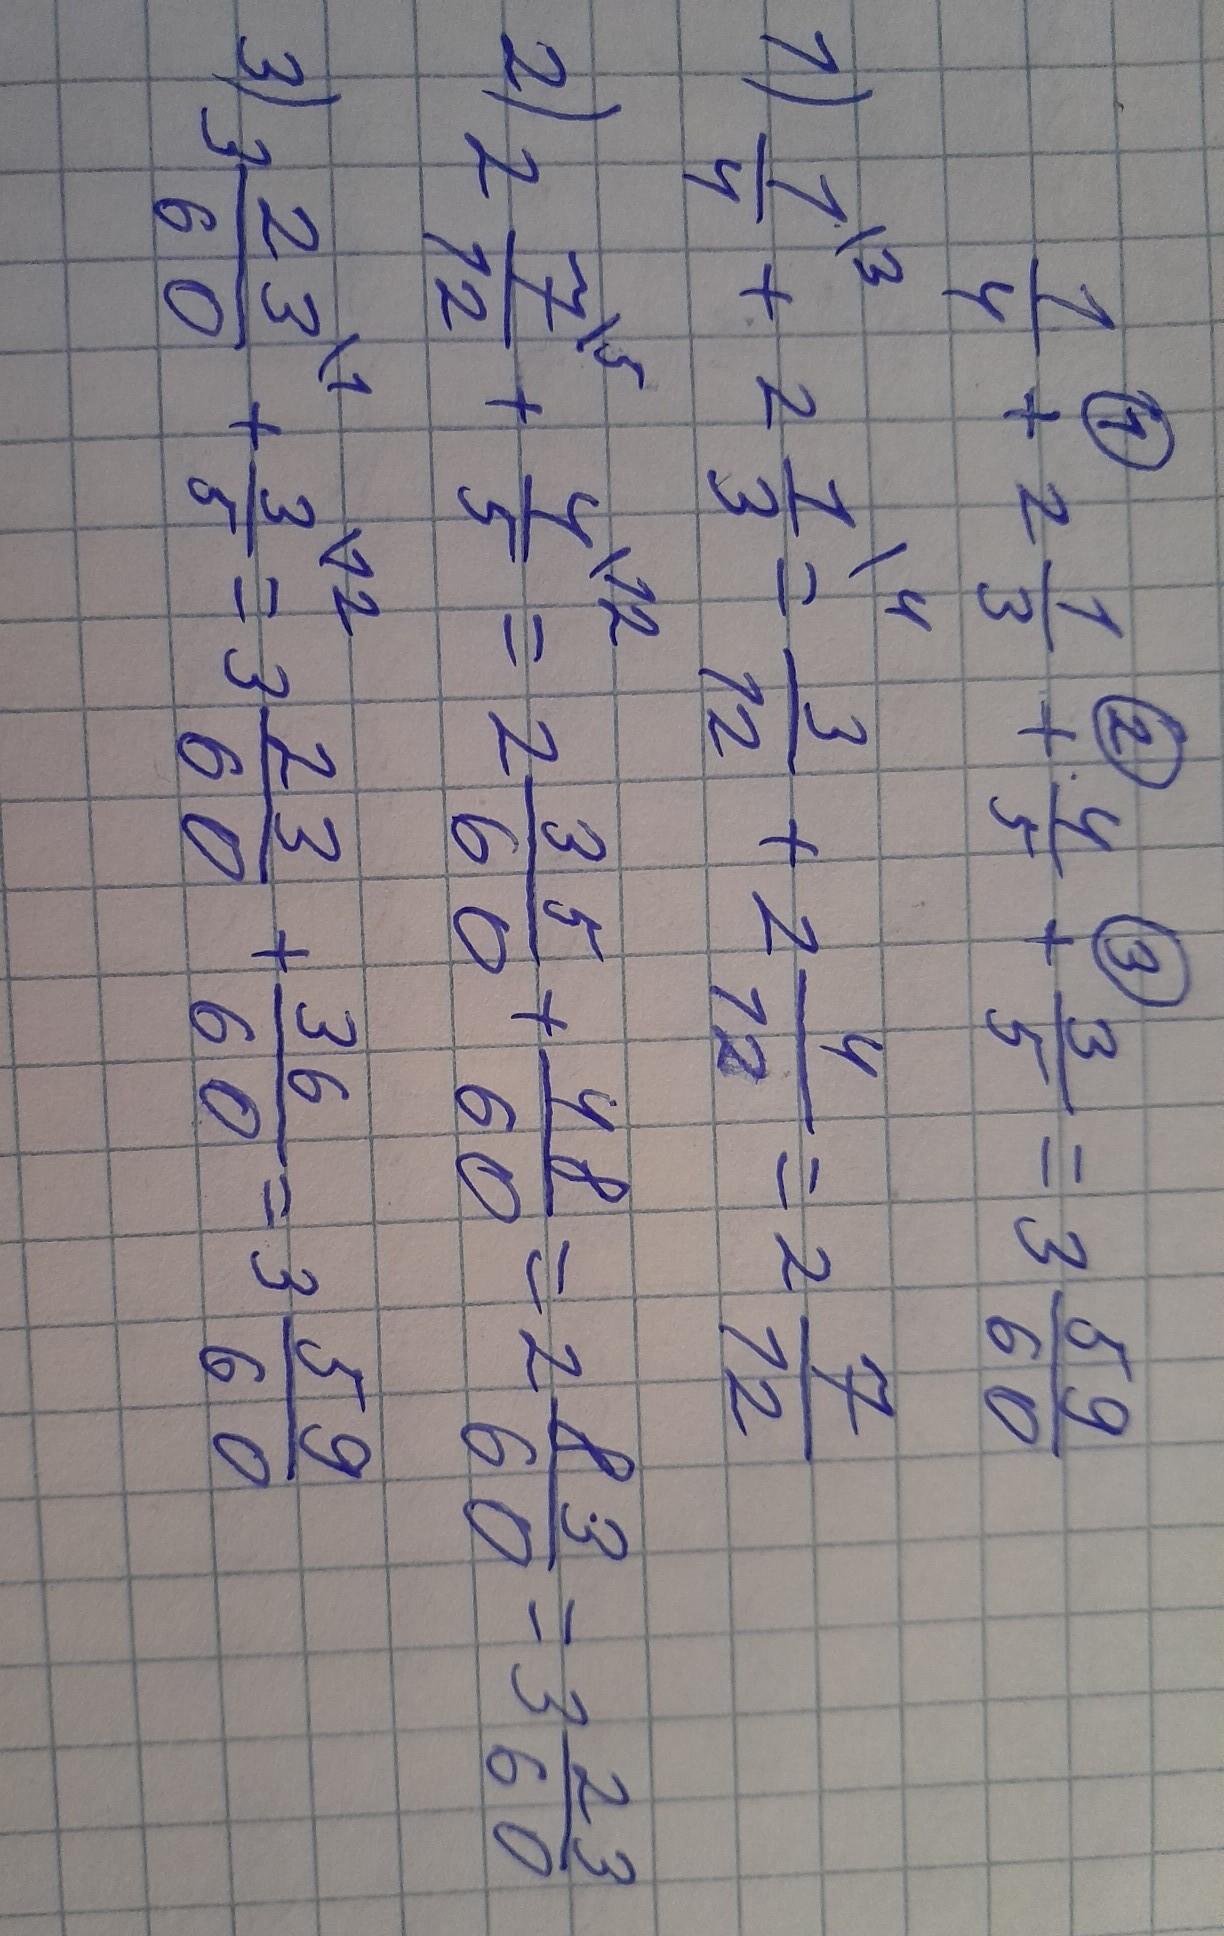 ① ② ③
1/4 + 2 1/3 + 4/5 + 3/5 = 3 59/60
1) 1/4 \3 + 2 1/3 \4 = 3/12 + 2 4/12 = 2 7/12
2) 2 7/12 \5 + 4/5 \12 = 2 35/60 + 48/60 = 2 83/60 = 3 23/60
3) 3 23/60 \1 + 3/5 \12 = 3 23/60 + 36/60 = 3 59/60